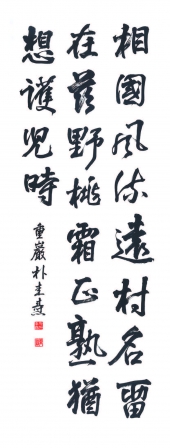 相國風流遠村名留
在茲野桃霜正熟猶
想護兒時
重巖朴圭